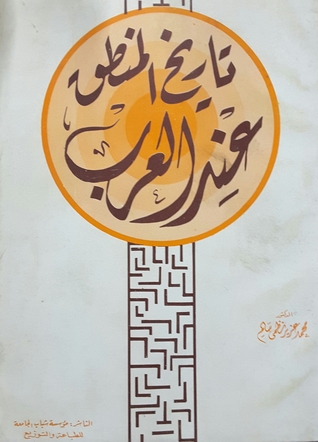 تاريخ المنطق
عند العرب
الدكتور
محمد عزيز نظمي سالم
الناشر : مؤسسة شباب الجامعة
للطباعة والتوزيع